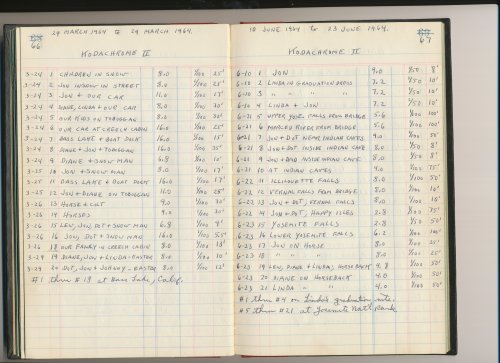 29 MARCH 1964 to 29 MARCH 1964.
66
KODACHROME II
3-24 1 CHILDREN IN SNOW 8.0 1/100 25'
3-24 2 JON IN SNOW IN STREET 8.0 1/100 25'
3-24 3 JON & OUR CAR 11.0 1/100 17'
3-24 4 DIANE, LINDA & OUR CAR 8.0 1/100 30'
3-24 5 OUR KIDS ON TOBOGGAN 8.0 1/100 30'
3-24 6 OUR CAR AT CREECH CABIN 16.0 1/100 25'
3-24 7 BASS LAKE & BOAT DOCK 16.0 1/100 15'
3-24 8 DIANE & JON & TOBOGGAN 16.0 1/100 35'
3-24 9 DIANE & SNOW MAN 6.8 1/100 10'
3-25 10 JON & SNOW MAN 8.0 1/100 17'
3-25 11 BASS LAKE & BOAT DOCK 16.0 1/100 17'
3-25 12 JON & DIANE ON TOBOGGAN 16.0 1/100 25'
3-26 13 HORSE & COLT 9.0 1/100 30'
3-26 14 HORSES 9.0 1/100 30'
3-26 15 LEN, JON, DOT & SNOW MAN 6.8 1/100 9'
3-26 16 JON, DOT & SNOW MAN 16.0 1/100
3-26 18 OUR FAMILY IN CREECH CABIN 8.0 18'
3-29 19 DIANE, JON & LINDA - EASTER 8.0 1/100 10'
3-29 20 DOT, JON & JOHNNY - EASTER 8.0 1/100 12'
#1 thru #18 at Bass Lake, Calif.
10 JUNE 1964 to 23 JUNE 1964.
67
KODACHROME II
6-10 1 JON 9.0 1/50 8'
6-10 2 LINDA IN GRADUATION DRESS 7.2 1/50 10'
6-10 3 " " " " 7.2 1/50 10'
6-10 4 LINDA & JON 7.2 1/50 10'
6-21 5 UPPER YOSE. FALLS FROM BRIDGE 5.6 1/100 100'
6-21 6 MERCED RIVER FROM BRIDGE 8.0 1/100 100'
6-21 7 JON & DOT NEAR INDIAN CAVES 9.0 1/100 50'
6-21 8 JON & DOT INSIDE INDIAN CAVE 8.0 1/50 8'
6-21 9 JON & DAD INSIDE INDIAN CAVE 8.0 1/50 8'
6-21 10 AT INDIAN CAVES 4.0 1/100 75'
6-22 11 ILLILOUETTE FALLS 8.0 1/100 50'
6-22 12 VERNAL FALLS FROM BRIDGE 8.0 1/100 10'
6-22 13 JON & DOT, VERNAL FALLS 8.0 1/100 10'
6-22 14 JON & DOT, HAPPY ISLES 2.8 1/100 75'
6-23 15 YOSEMITE FALLS 2.8 1/50 50'
6-23 16 LOWER YOSEMITE FALLS 6.2 1/100 100'
6-23 17 JON ON HORSE 8.0 1/100 25'
6-23 18 " " " 8.0 1/100 18'
6-23 19 LEN, DIANE & LINDA, HORSEBACK 4.8 1/100 50'
6-23 20 DIANE ON HORSEBACK 4.0 1/100 50'
6-23 21 LINDA " " 4.0 1/100 50'
#1 thru #4 on Linda's graduation nite.
#5 thru #21 at Yosemite Nat'l Park